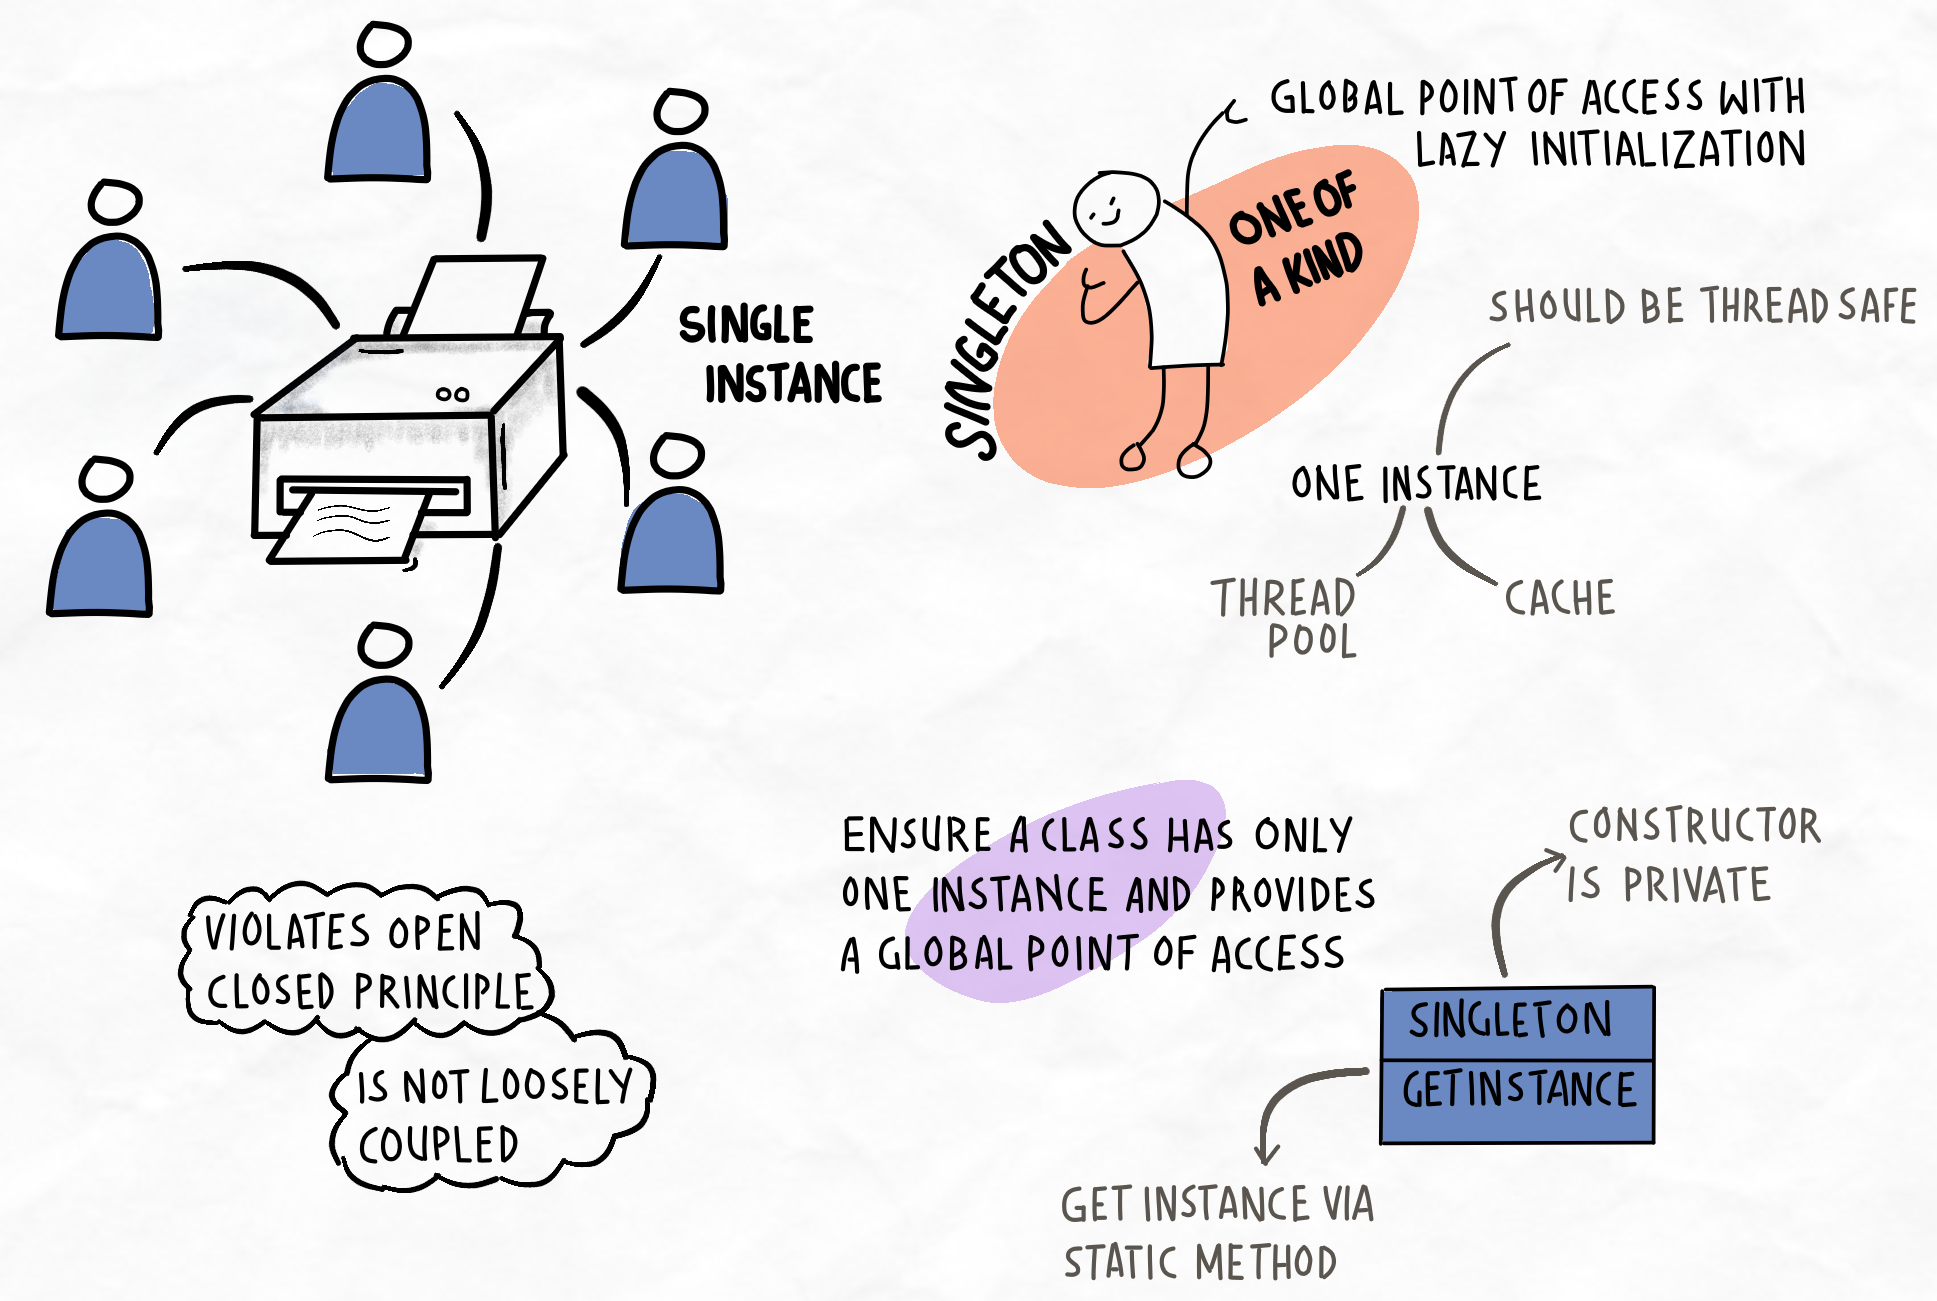 SINGLE
INSTANCE
SINGLETON
ONE OF
A KIND
GLOBAL POINT OF ACCESS WITH
LAZY INITIALIZATION
SHOULD BE THREAD SAFE
ONE INSTANCE
THREAD
POOL
CACHE
VIOLATES OPEN
CLOSED PRINCIPLE
IS NOT LOOSELY
COUPLED
ENSURE A CLASS HAS ONLY
ONE INSTANCE AND PROVIDES
A GLOBAL POINT OF ACCESS
CONSTRUCTOR
IS PRIVATE
SINGLETON
GETINSTANCE
GET INSTANCE VIA
STATIC METHOD